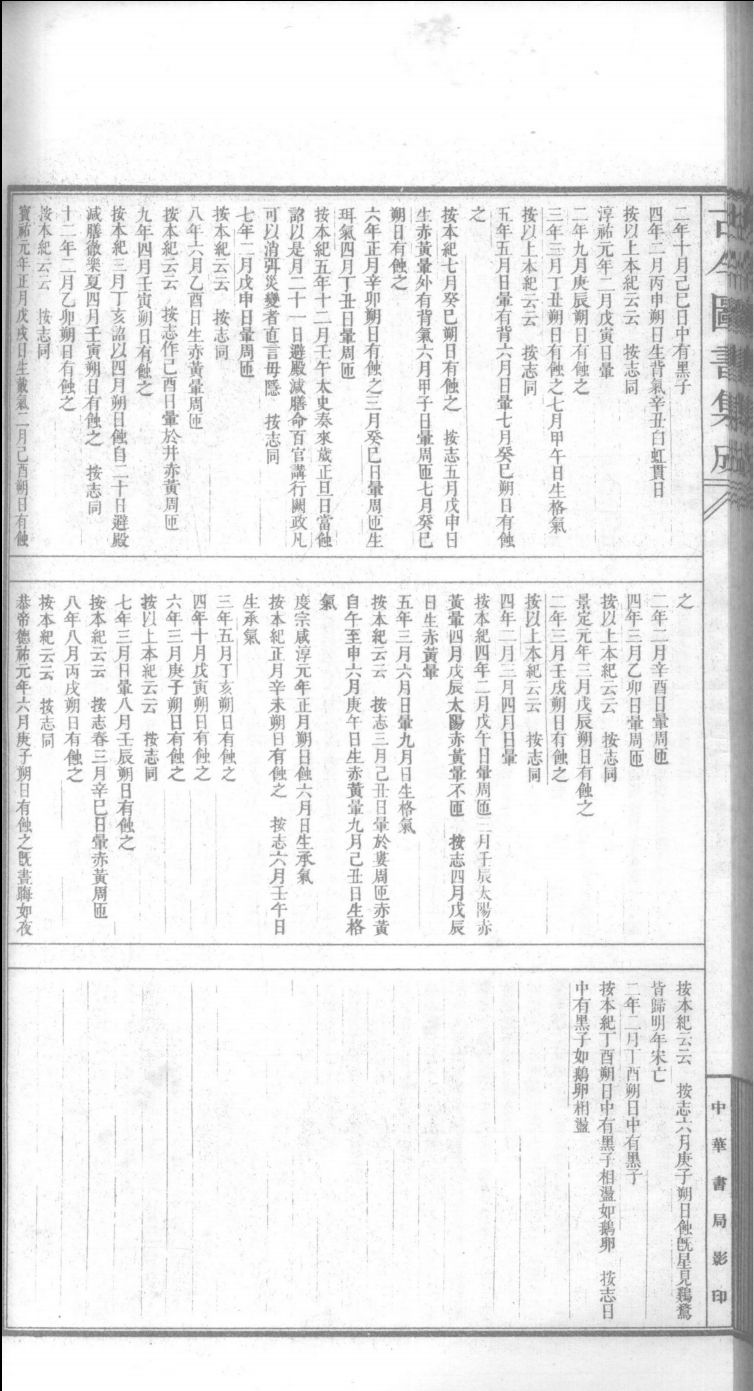 古今圖書集成
二年十月己巳日中有黑子
四年二月丙申朔日生背氣辛丑白虹貫日
按以上本紀云云　按志同
淳祐元年二月戊寅日暈
二年九月庚辰朔日有蝕之
三年三月丁丑朔日有蝕之七月甲午日生格氣
按以上本紀云云　按志同
五年五月日暈有背六月日暈七月癸巳朔日有蝕
之
按本紀七月癸巳朔日有蝕之　按志五月戊申日
生赤黃暈外有背氣六月甲子日暈周匝七月癸巳
朔日有蝕之
六年正月辛卯朔日有蝕之三月癸巳日暈周匝生
珥氣四月丁丑日暈周匝
按本紀五年十二月壬午太史奏來歲正旦日當蝕
詔以是月二十一日避殿減膳命百官講行闕政凡
可以消弭災變者直言毋隱　按志同
七年二月戊申日暈周匝
按本紀云云　按志同
八年六月乙酉日生赤黃暈周匝
按本紀云云　按志作己酉日暈於井赤黃周匝
九年四月壬寅朔日有蝕之
按本紀三月丁亥詔以四月朔日蝕自二十日避殿
減膳徹樂夏四月壬寅朔日有蝕之　按志同
十二年二月乙卯朔日有蝕之
按本紀云云　按志同
寶祐元年正月戊戌日生戴氣二月己酉朔日有蝕
之
二年二月辛酉日暈周匝
四年三月乙卯日暈周匝
按以上本紀云云　按志同
景定元年三月戊辰朔日有蝕之
二年三月壬戌朔日有蝕之
按以上本紀云云　按志同
四年二月三月四月日暈
按本紀四年二月戊午日暈周匝三月壬辰太陽赤
黃暈四月戊辰太陽赤黃暈不匝　按志四月戊辰
日生赤黃暈
五年三月六月日暈九月日生格氣
按本紀云云　按志三月己丑日暈於婁周匝赤黃
自午至申六月庚午日生赤黃暈九月己丑日生格
氣
度宗咸淳元年正月朔日蝕六月日生承氣
按本紀正月辛未朔日有蝕之　按志六月壬午日
生承氣
三年五月丁亥朔日有蝕之
四年十月戊寅朔日有蝕之
六年三月庚子朔日有蝕之
按以上本紀云云　按志同
七年三月日暈八月壬辰朔日有蝕之
按本紀云云　按志春三月辛巳日暈赤黃周匝
八年八月丙戌朔日有蝕之
按本紀云云　按志同
恭帝德祐元年六月庚子朔日有蝕之旣晝晦如夜
按本紀云云　按志六月庚子朔日蝕旣星見鷄鶩
皆歸明年宋亡
二年二月丁酉朔日中有黑子
按本紀丁酉朔日中有黑子相盪如鵝卵　按志日
中有黑子如鵝卵相盪
中華書局影印